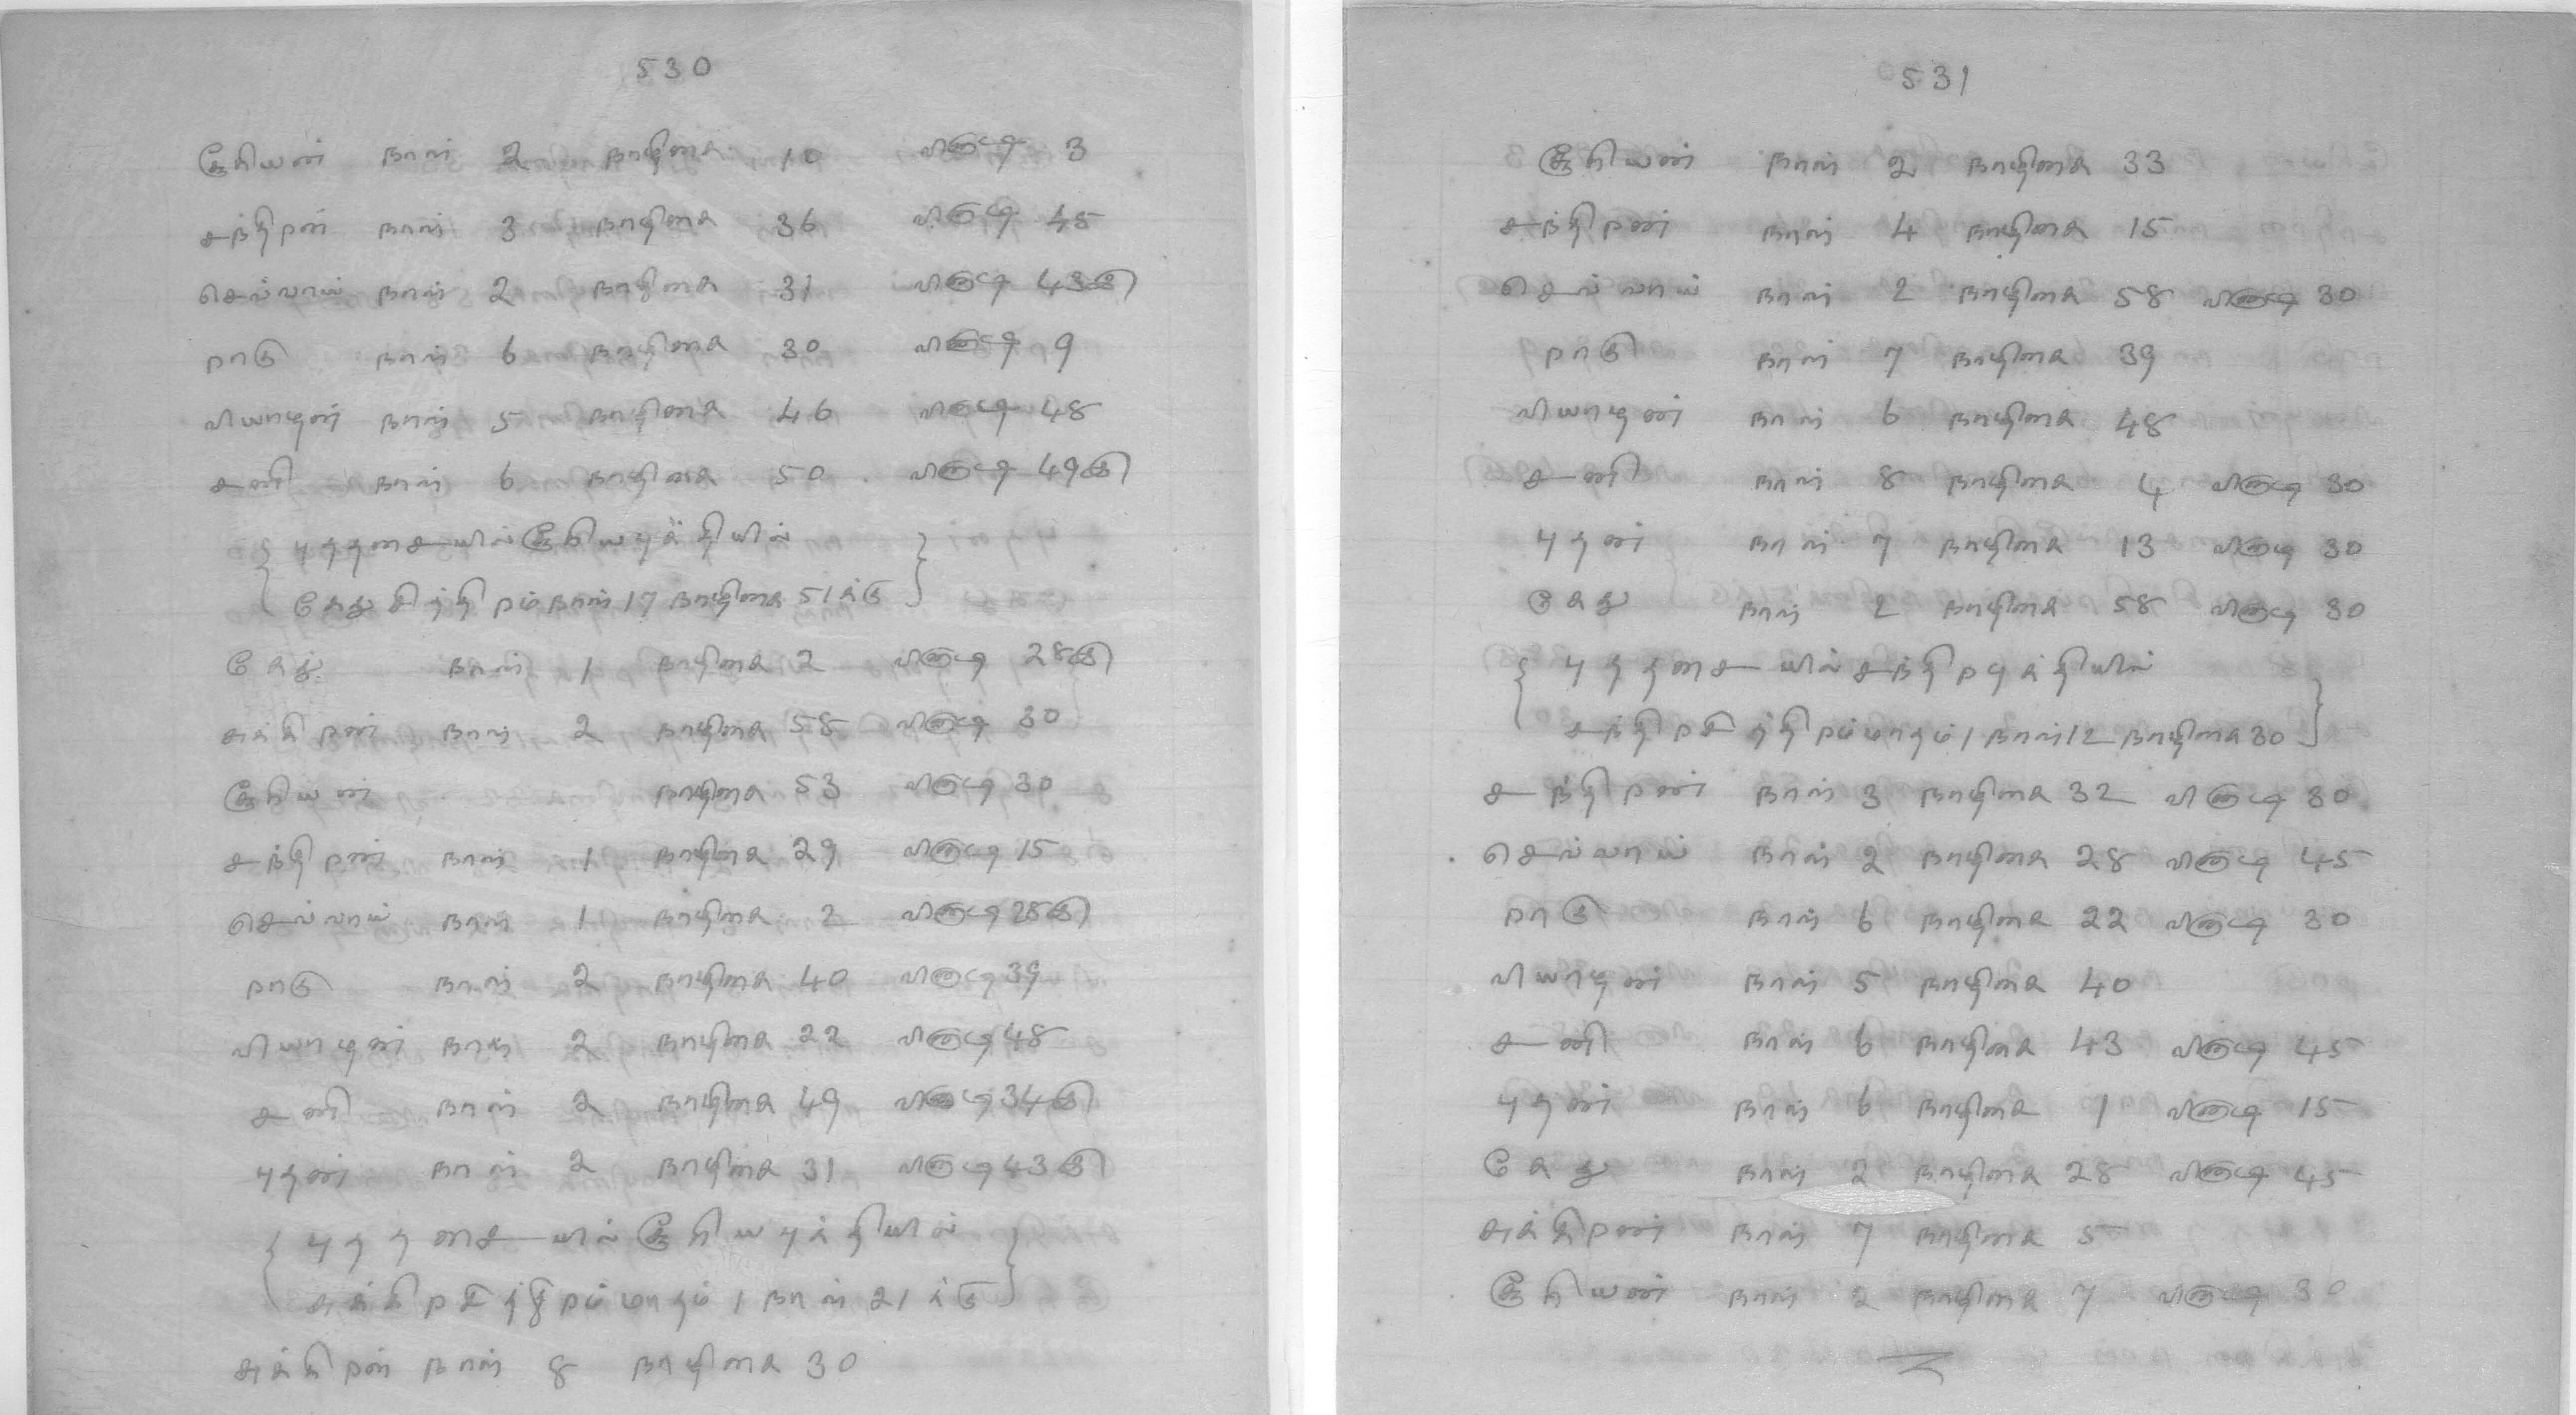 530
சூரியன் நாள் 2 நாழிகை 10 விநாடி 3
சந்திரன் நாள் 3 நாழிகை 36 விநாடி 45
செவ்வாய் நாள் 2 நாழிகை 31 விநாடி 43௫
ராகு நாள் 6 நாழிகை 30 விநாடி 9
வியாழன் நாள் 5 நாழிகை 46 விநாடி 48
சனி நாள் 6 நாழிகை 50 விநாடி 49௫
{ புததசையில் சூரியபுக்தியில் }
{ கேது சித்திரம் நாள் 17 நாழிகை 51க்கு }
கேது நாள் 1 நாழிகை 2 விநாடி 28௫
சுக்கிரன் நாள் 2 நாழிகை 58 விநாடி 30
சூரியன் நாழிகை 53 விநாடி 30
சந்திரன் நாள் 1 நாழிகை 29 விநாடி 15
செவ்வாய் நாள் 1 நாழிகை 2 விநாடி 28௫
ராகு நாள் 2 நாழிகை 40 விநாடி 39
வியாழன் நாள் 2 நாழிகை 22 விநாடி 48
சனி நாள் 2 நாழிகை 49 விநாடி 34௫
புதன் நாள் 2 நாழிகை 31 விநாடி 43௫
{ புததசையில் சூரியபுக்தியில் }
{ சுக்கிரசித்திரம் மாதம் 1 நாள் 21க்கு }
சுக்கிரன் நாள் 8 நாழிகை 30
531
சூரியன் நாள் 2 நாழிகை 33
சந்திரன் நாள் 4 நாழிகை 15
செவ்வாய் நாள் 2 நாழிகை 58 விநாடி 30
ராகு நாள் 7 நாழிகை 39
வியாழன் நாள் 6 நாழிகை 48
சனி நாள் 8 நாழிகை 4 விநாடி 30
புதன் நாள் 7 நாழிகை 13 விநாடி 30
கேது நாள் 2 நாழிகை 58 விநாடி 30
{ புததசையில் சந்திரபுக்தியில் }
{ சந்திரசித்திரம் மாதம் 1 நாள் 12 நாழிகை 30 }
சந்திரன் நாள் 3 நாழிகை 32 விநாடி 30
செவ்வாய் நாள் 2 நாழிகை 28 விநாடி 45
ராகு நாள் 6 நாழிகை 22 விநாடி 30
வியாழன் நாள் 5 நாழிகை 40
சனி நாள் 6 நாழிகை 43 விநாடி 45
புதன் நாள் 6 நாழிகை 1 விநாடி 15
கேது நாள் 2 நாழிகை 28 விநாடி 45
சுக்கிரன் நாள் 7 நாழிகை 5
சூரியன் நாள் 2 நாழிகை 7 விநாடி 30